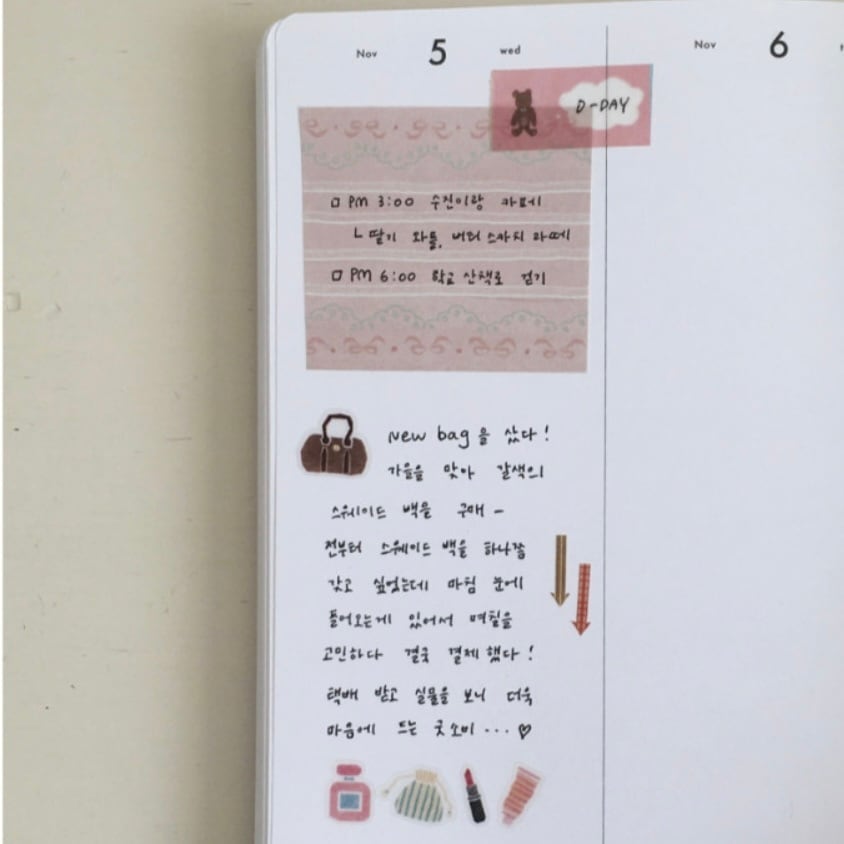 Nov 5 wed
Nov 6
D-DAY
□ PM 3:00 수진이랑 카페
ㄴ딸기 와플, 버터 스카치 라떼
□ PM 6:00 학교 산책로 걷기
New bag을 샀다!
가을을 맞아 갈색의
스웨이드 백을 구매 –
전부터 스웨이드 백을 하나쯤
갖고 싶었는데 마침 눈에
들어오는게 있어서 며칠을
고민하다 결국 결제했다!
택배 받고 실물을 보니 더욱
마음에 드는 굿소비 ... ♡